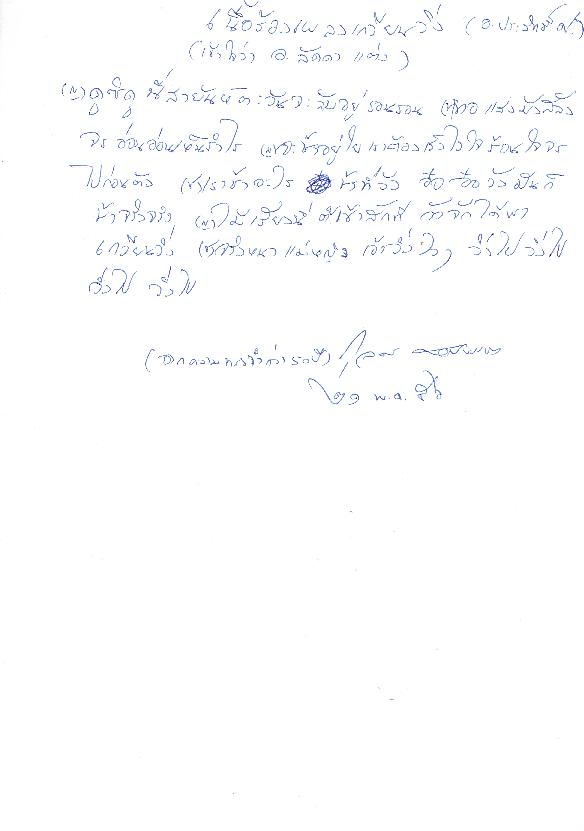 เนื้อร้องเพลงเกวียนวิ่ง (อ.ประสิทธิ์
(เข้าใจว่า อ.ลัดดา แต่ง)
(ญ) ดูซิดู นี่สายัณห์ตะวันจะลับอยู่รอนรอน แสง
จร อ่อนอ่อนเห็นรำไร จะช้าอยู่ใย เราต้องเร่งไวใจร้อนใจจร
ไปก่อนตัว (ช) เราช้าอะไร ช้าที่วัว ฮือ ฮือ วัวมันก็
ช้าจริงจริง (ญ) ไม้เรียวนี่ ตีเข้าสักที ก็จักได้พา
เกวียนวิ่ง (ช) จริงหนาแม่หญิง เจ้าวิ่ง วิ่งไป วิ่งไป
วิ่งไป วิ่งไป
(จากความทรงจำ
๒๑ พ.ค.